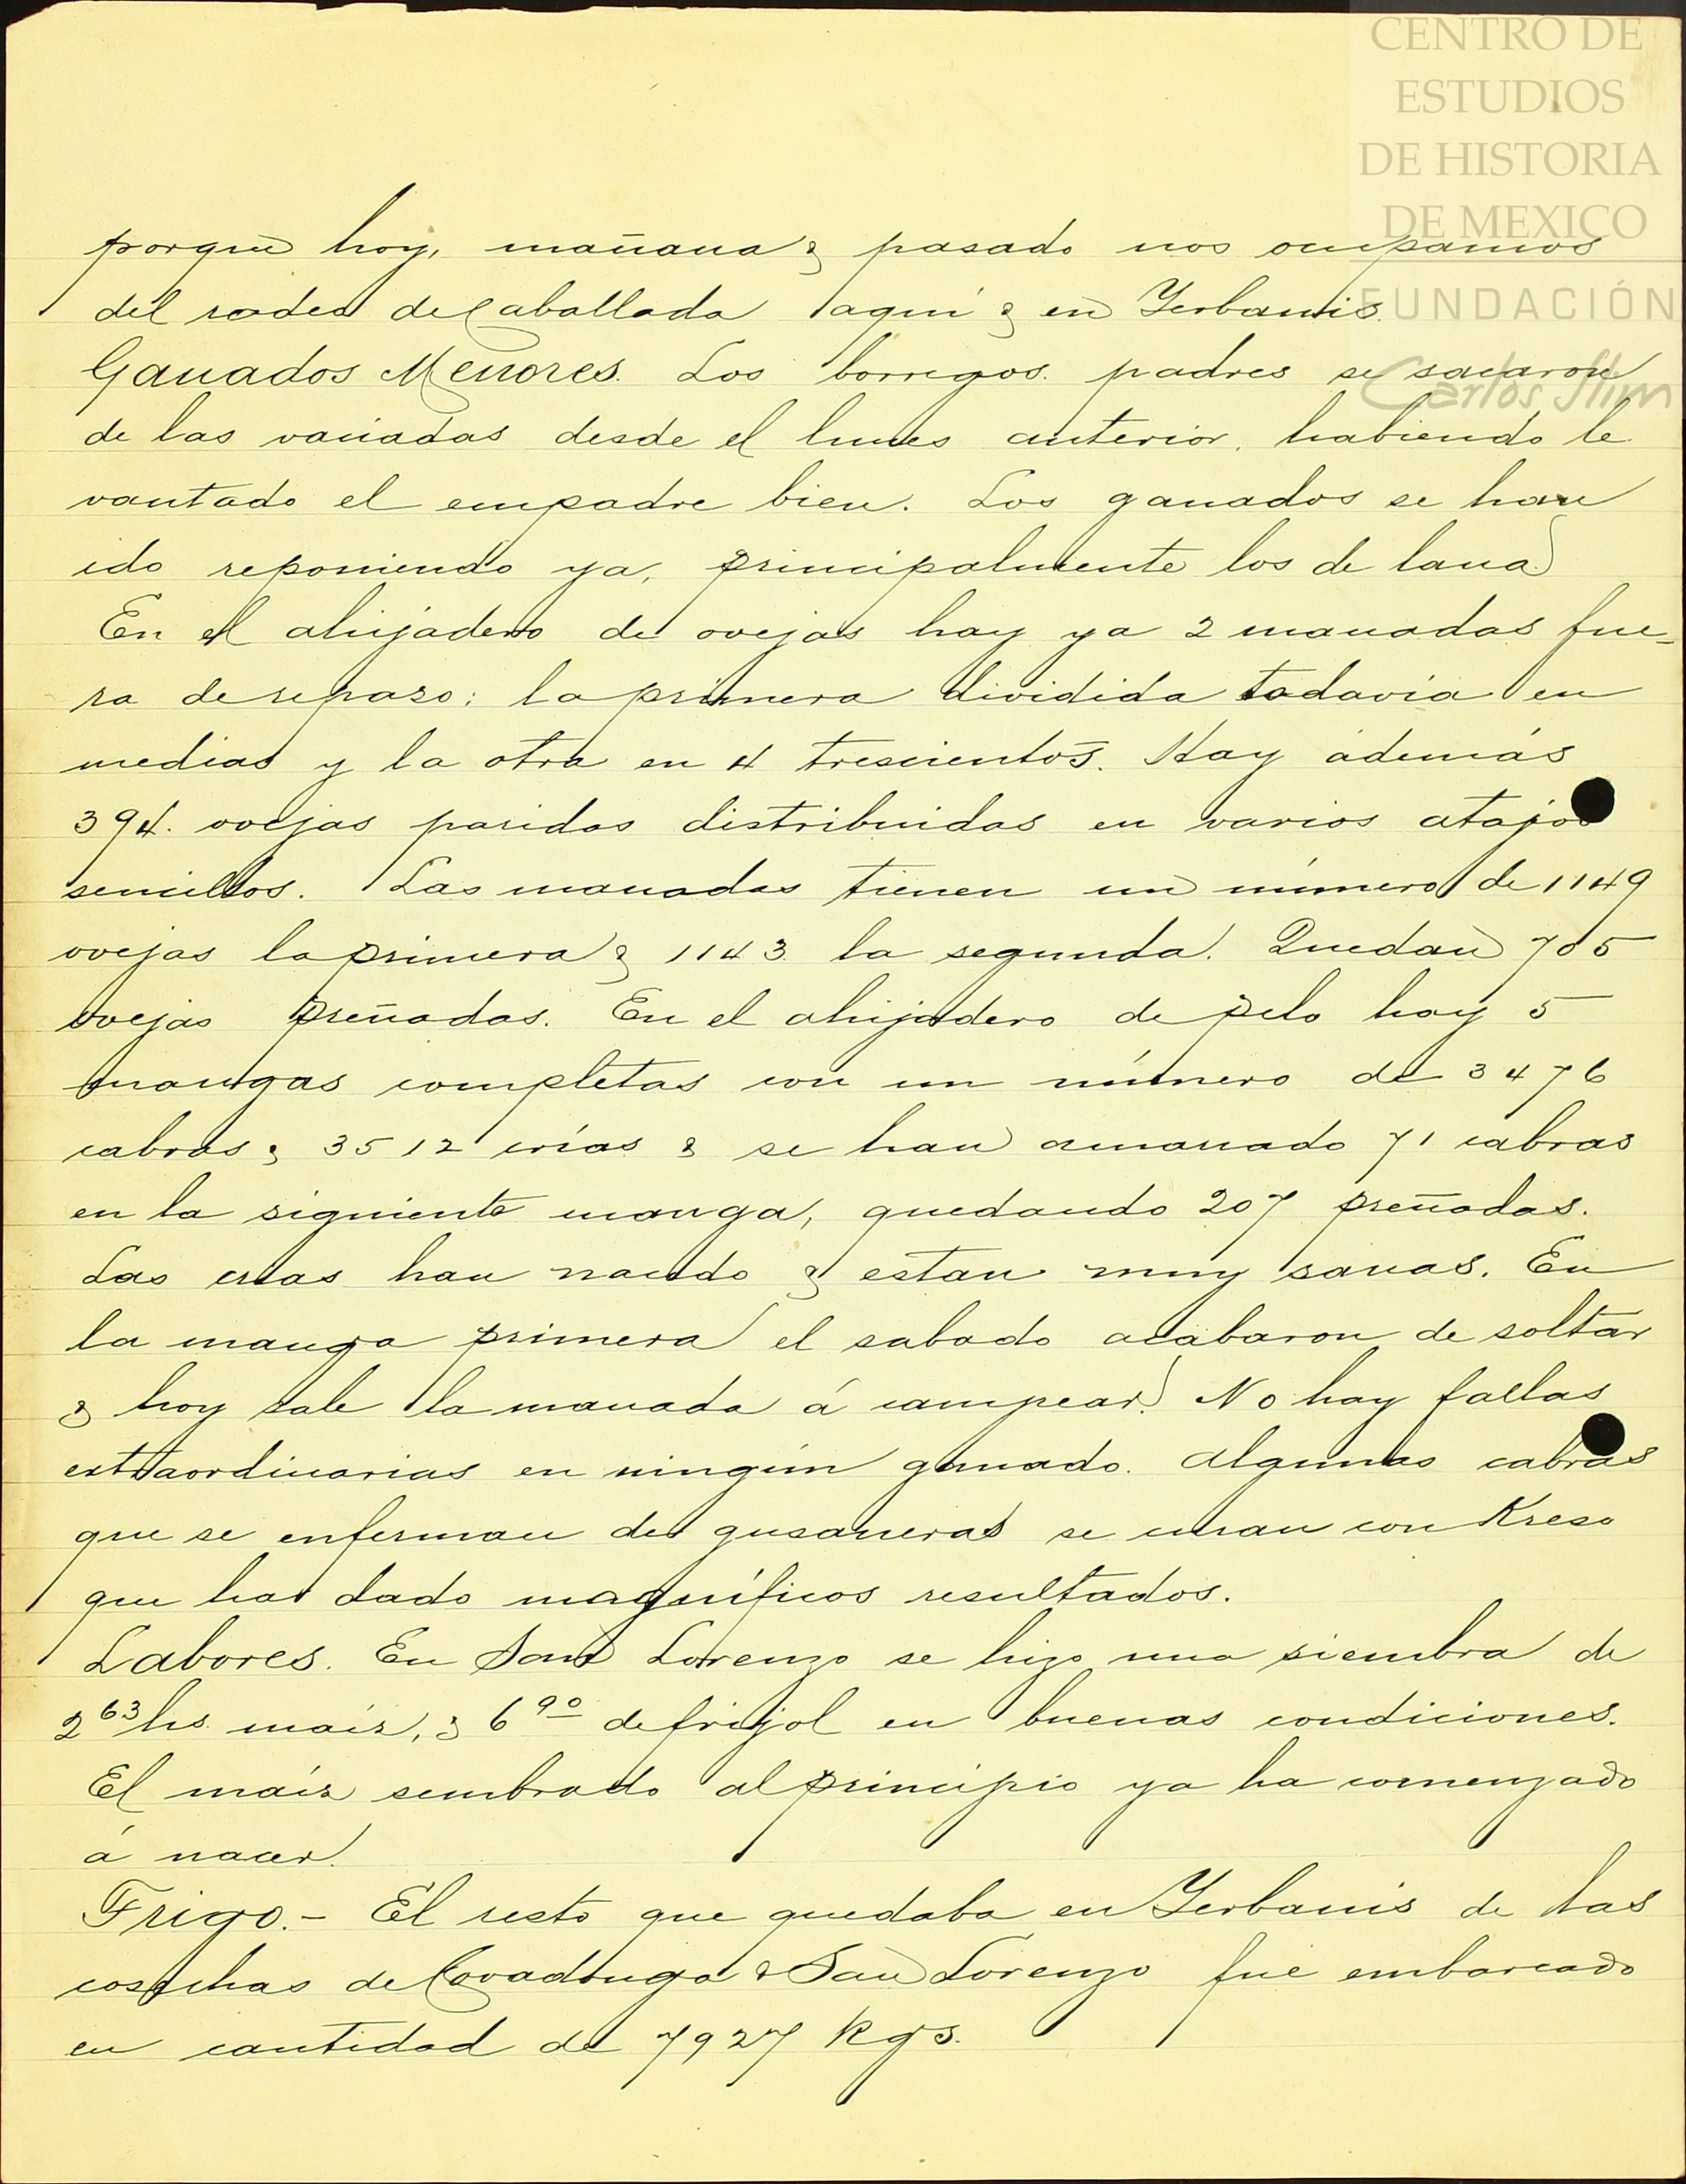 CENTRO DE
ESTUDIOS
DE HISTORIA
DE MEXICO
FUNDACIÓN
Carlos Slim
porque hoy, mañana & pasado nos ocupamos
del rodeo de Caballada aquí & en Yerbanis.
Ganados Menores. Los borregos padres se sacaron
de las vaciadas desde el lunes anterior, habiendo le
vantado el empadre bien. Los ganados se han
ido reponiendo ya, principalmente los de lana
En el ahijadero de ovejas hay ya 2 manadas fue-
ra de repaso; la primera dividida todavía en
medias y la otra en 4 trescientos. Hay además
394 ovejas paridas distribuidas en varios atajos
sencillos. Las manadas tienen un número de 1149
ovejas la primera & 1143 la segunda. Quedan 705
ovejas preñadas. En el ahijadero de pelo hay 5
mangas completas con un número de 3476
cabras & 3512 crías & se han amarrado 71 cabras
en la siguiente manga, quedando 207 preñadas.
Las crias han nacido & estan muy sanas. En
la manga primera el sabado acabaron de soltar
& hoy sale la manada á campear. No hay fallas
extraordinarias en ningún ganado. Algunas cabras
que se enferman de gusaneras se curan con Kreso
que ha dado magníficos resultados.
Labores. En San Lorenzo se hizo una siembra de
2 63 hs. maíz, & 6 90 de frijol en buenas condiciones.
El maíz sembrado al principio ya ha comenzado
á nacer.
Trigo.- El resto que quedaba en Yerbanis de las
cosechas de Covadonga & San Lorenzo fué embarcado
en cantidad de 7927 Kgs.